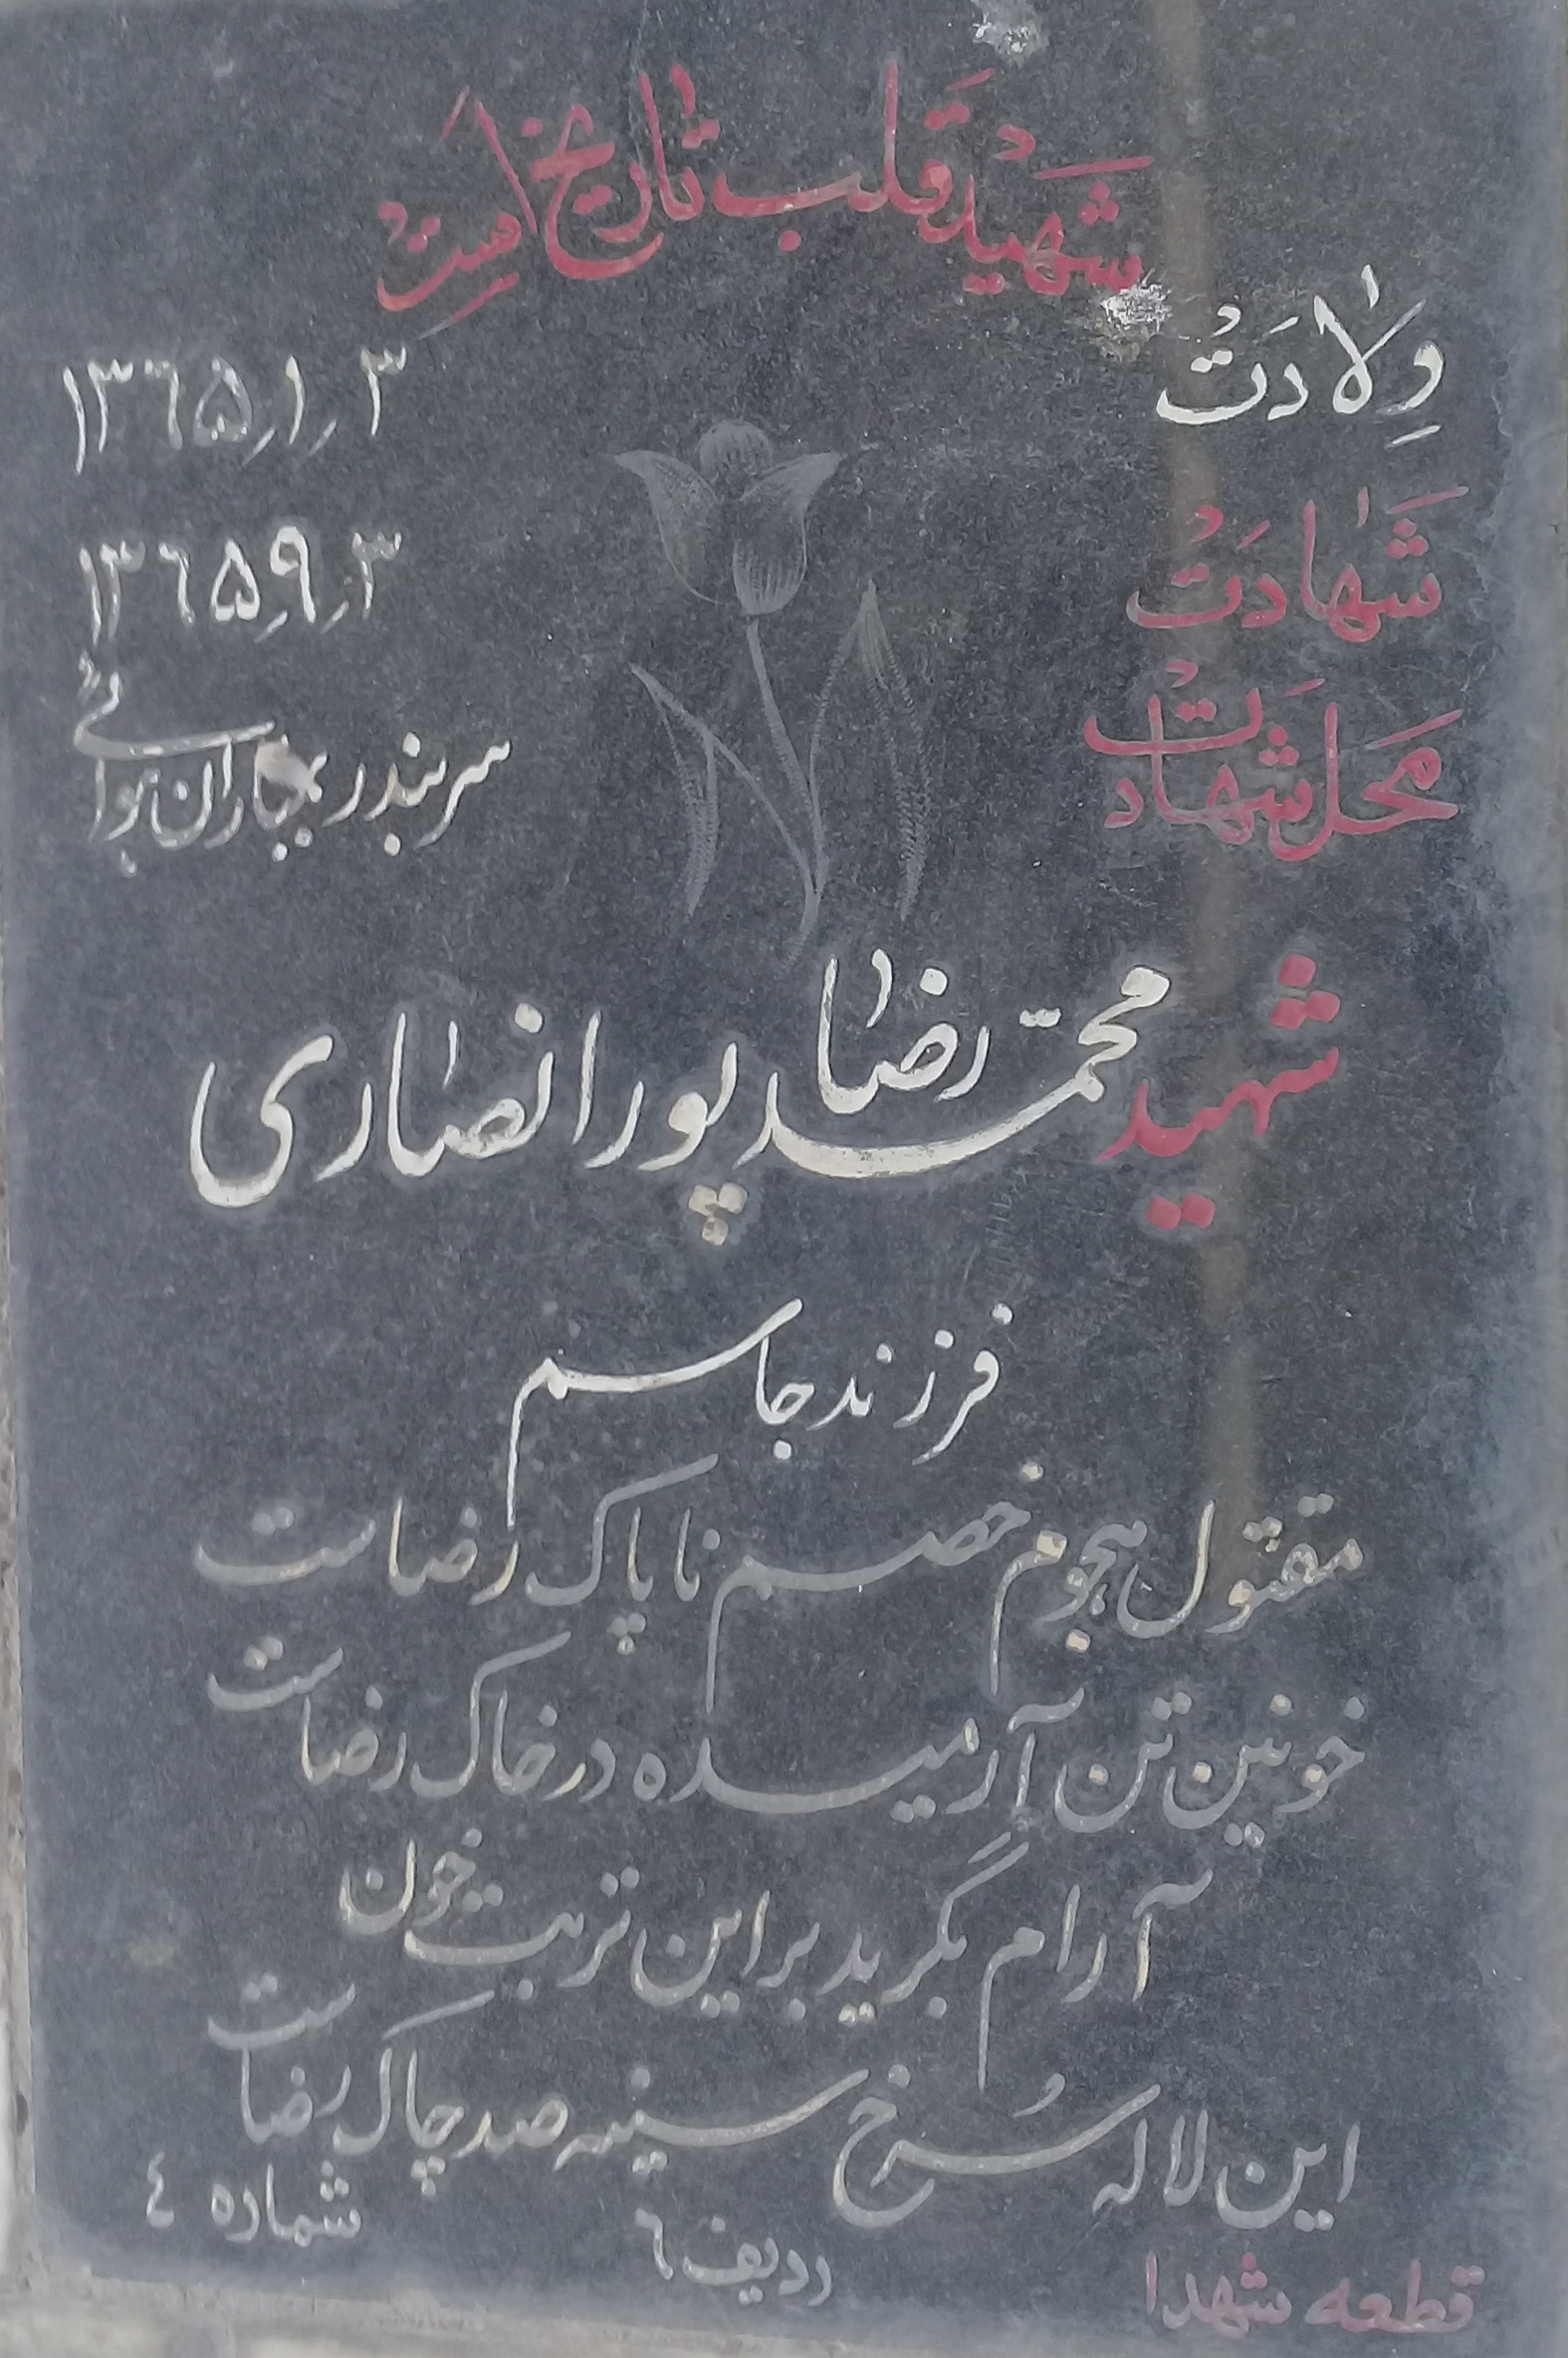 شهید قلب تاریخ است
ولادت ۱۳۶۵٫۱٫۳
شهادت ۱۳۶۵٫۹٫۳
محل شهادت سربندر بمباران هوائی
شهید محمدرضا پورانصاری
فرزند جاسم
مقتول هجوم خصم ناپاک رضاست
خونین تن آرمیده در خاک رضاست
آرام بگرید بر این تربت خون
این لاله سرخ سینه صد چاک رضاست
قطعه شهدا ردیف ۶ شماره ۴